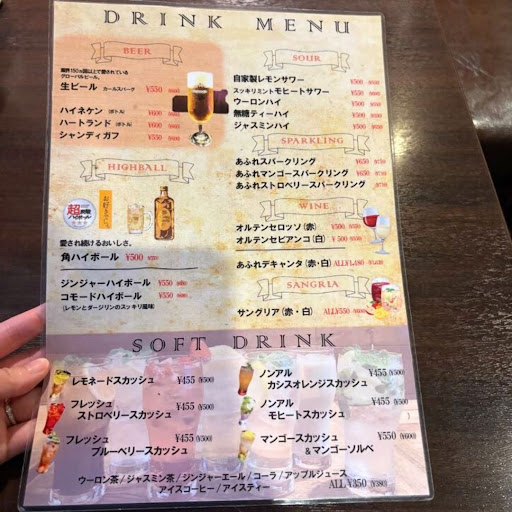 DRINK MENU
BEER
世界150カ国以上で愛されている
グローバルビール。
生ビール カールスバーグ ¥550
ハイネケン (ボトル) ¥600
ハートランド (ボトル) ¥600
シャンディガフ ¥550
HIGHBALL
超炭酸
ハイボール
お好きでしょ。
愛され続けるおいしさ。
角ハイボール ¥500
ジンジャーハイボール ¥550
コモードハイボール ¥550
(レモンとダージリンのスッキリ風味)
SOUR
自家製レモンサワー ¥500
スッキリミントモヒートサワー ¥500
ウーロンハイ ¥500
無糖ティーハイ ¥500
ジャスミンハイ ¥500
SPARKLING
あふれスパークリング ¥650
あふれマンゴースパークリング ¥650
あふれストロベリースパークリング ¥650
WINE
オルテンセロッソ (赤) ¥500
オルテンセビアンコ (白) ¥500
あふれデキャンタ (赤・白) ALL
SANGRIA
サングリア (赤・白) ALL ¥550
SOFT DRINK
レモネードスカッシュ ¥455 (¥500)
フレッシュ
ストロベリースカッシュ ¥455 (¥500)
フレッシュ
ブルーベリースカッシュ ¥455 (¥500)
ノンアル
カシスオレンジスカッシュ ¥455 (¥500)
ノンアル
モヒートスカッシュ ¥455 (¥500)
マンゴースカッシュ
&マンゴーソルベ ¥550 (¥600)
ウーロン茶 / ジャスミン茶 / ジンジャーエール / コーラ / アップルジュース
アイスコーヒー / アイスティー ALL ¥350 (¥380)